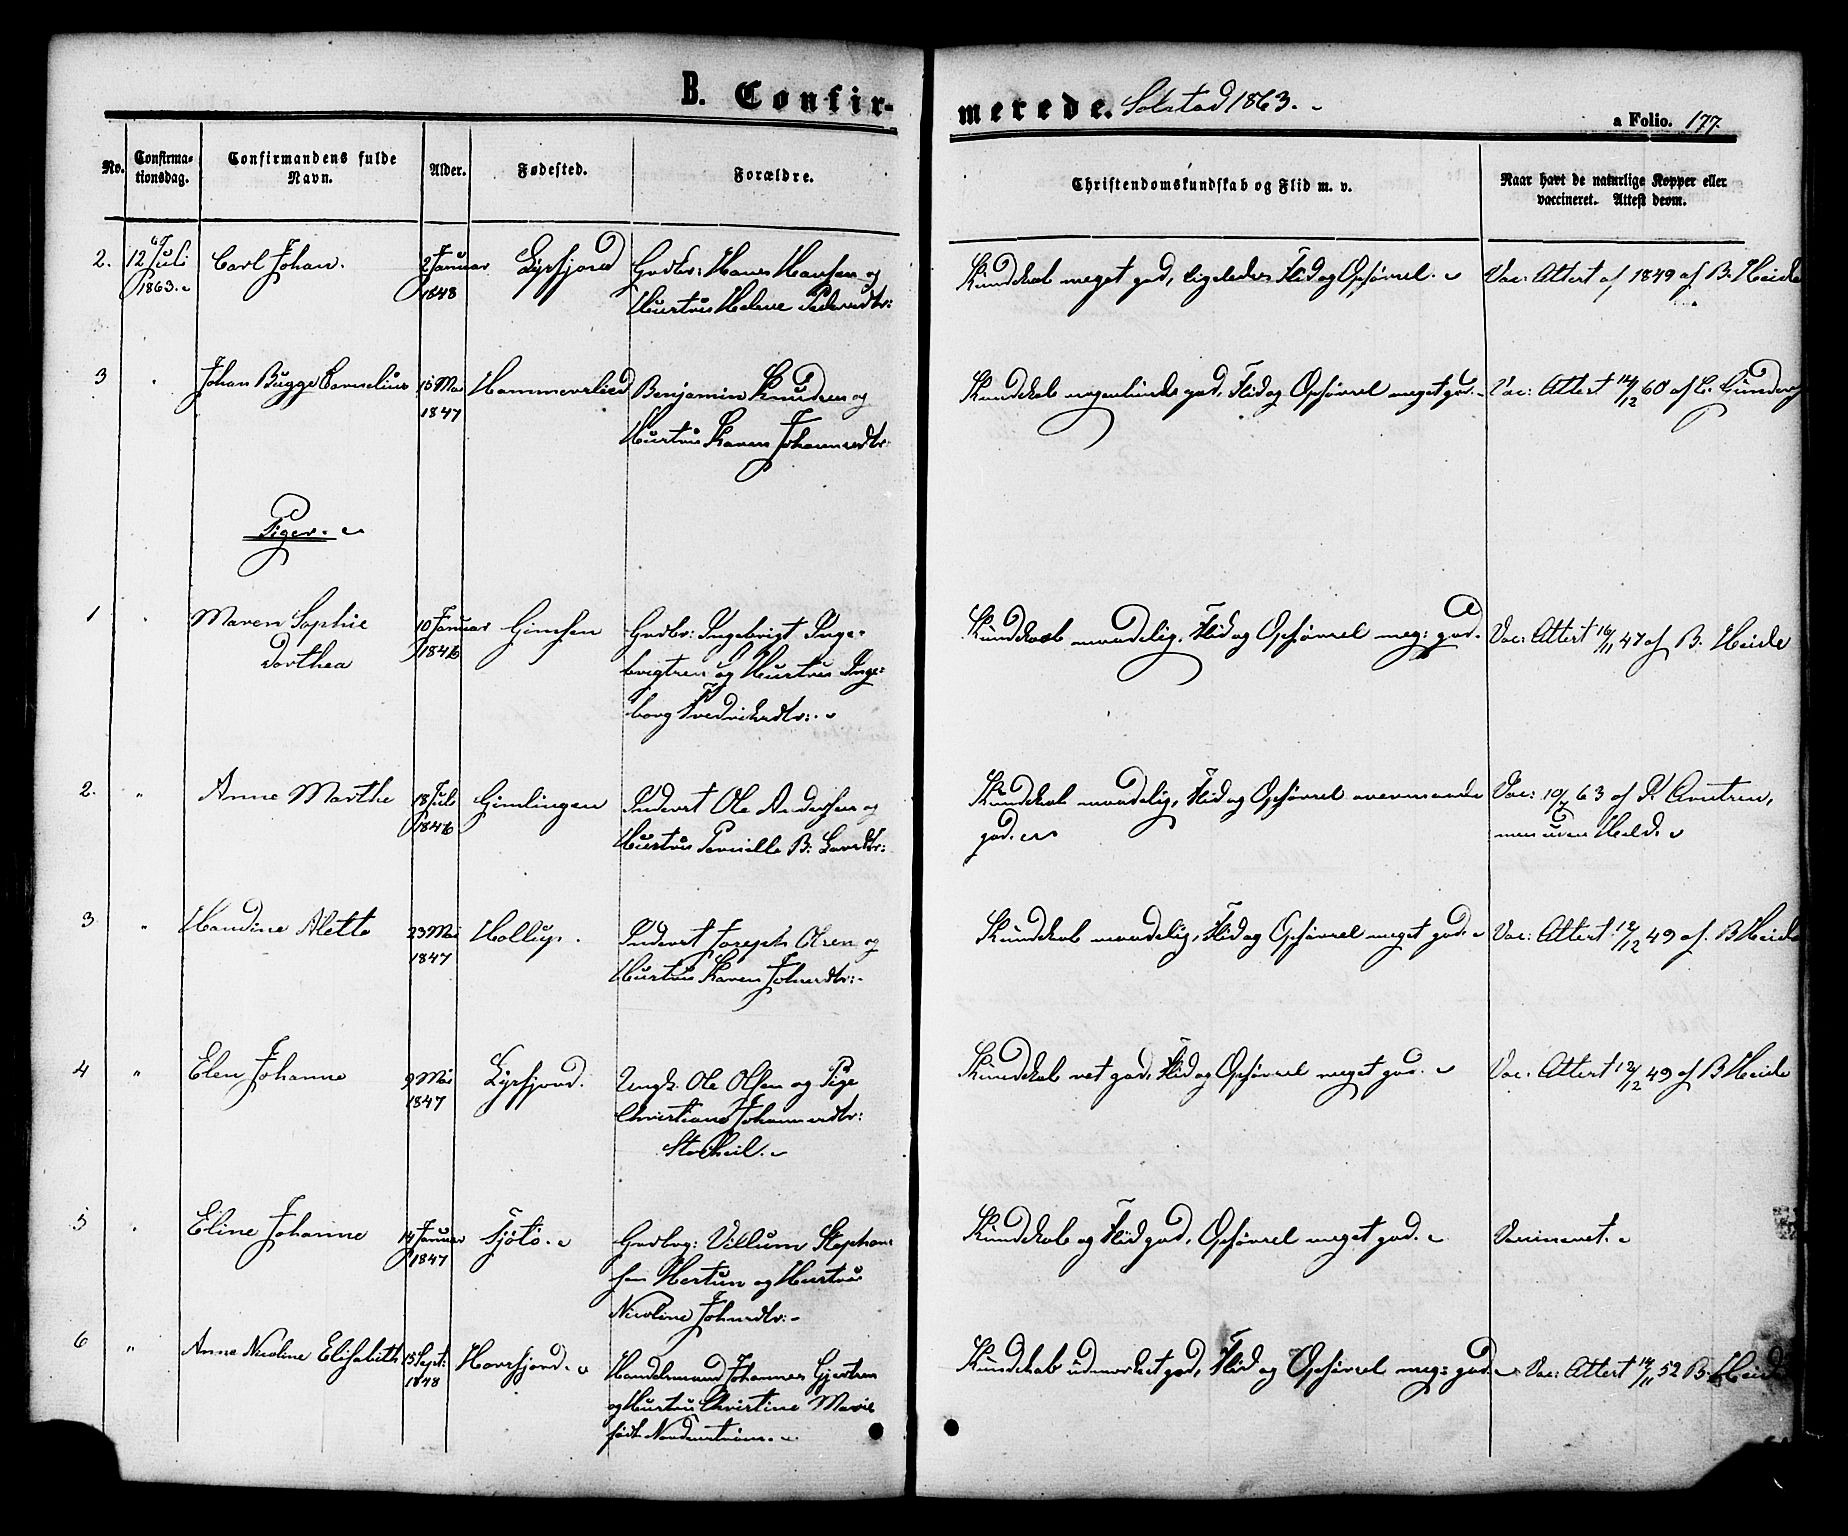 B. Confirmerede. Solstad 1863.
a Folio. 177.
No. Confirmationsdag. Confirmandens fulde Navn. Alder. Fødested. Forældre. Christendomskundskab og Flid m. v. Naar havt de naturlige Kopper eller vaccineret. Attest derom.
2. 12 Juli Carl Johan. 2 Januar Lyrsfjord Grdbr: Hans Hansen og Kundskab meget god, ligeledes Flid og Opførsel. Vac: Attest af 1849 af B. Heide
1863. 1848 Hustru Helene Pedersdtr:
3 " Johan Bugge Cornelius 15 Mai Hammerslied Benjamin Knudsen og Kundskab nogenlunde god, Flid og Opførsel meget god. Vac: Attest 14/12 60 af
1847 Hustru Karen Johannesdtr:
Piger.
1 " Maren Sophie 10 Januar Gimsen Grdbr: Ingebrigt Inge- Kundskab maadelig, Flid og Opførsel meg: god. Vac: Attest 16/11 47 af B. Heide
Dorthea 1846 brigtsen og Hustru Inge-
borg Fredriksdtr:
2. " Anne Marthe 18 Juli Gimlingen Inderst Ole Andersen og Kundskab maadelig, Flid og Opførsel overmaade Vac: 10/7 63 af
1846 Hustru Pernille B: Larsdtr: god. men uden Held.
3 " Handine Alette 23 Mai Hollup. Inderst Joseph Olsen og Kundskab maadelig, Flid og Opførsel meget god. Vac: Attest 12/12 49 af B Heide
1847 Hustru Karen Johnsdtr:
4 " Elen Johanne 9 Mai Lyrsfjord. Ungk. Ole Olsen og Pige Kundskab ret god, Flid og Opførsel meget god. Vac: Attest 12/12 49 af B Heide
1847 Christiane Johannesdtr:
Storheil.
5 " Eline Johanne 14 Januar Tjötö. Grdbrg: Villum Stephan- Kundskab og Flid god, Opførsel meget god. Vaccineret.
1847 sen Hortun og Hustru
Nicoline Johnsdtr:
6 " Anne Nicoline Elisabeth 15 Sept: Horsfjord. Handelsmand Johannes Gjertsen Kundskab udmærket god, Flid og Opførsel meg: god. Vac: Attest 14/11 52 B. Heide
1848 og Hustru Christine Marie
født Nordenstrøm.